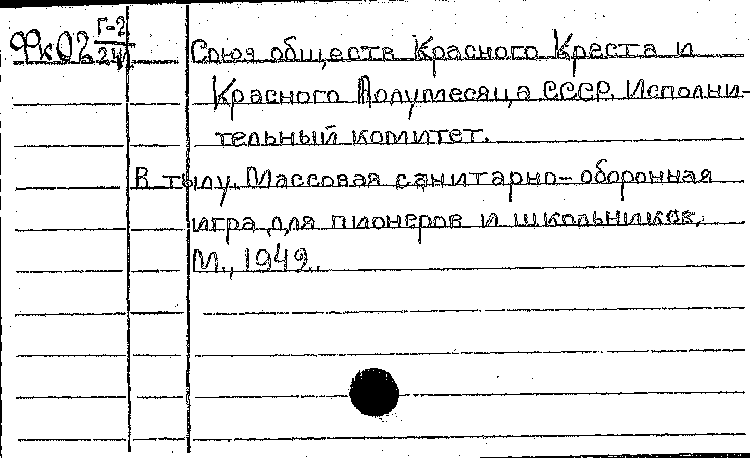 ФкО2 Г-2
Союз обществ Красного Креста и
Красного Полумесяца СССР. Исполни-
тельный комитет.
В тылу. Массовая санитарно-оборонная
игра для пионеров и школьников.
М., 1942.